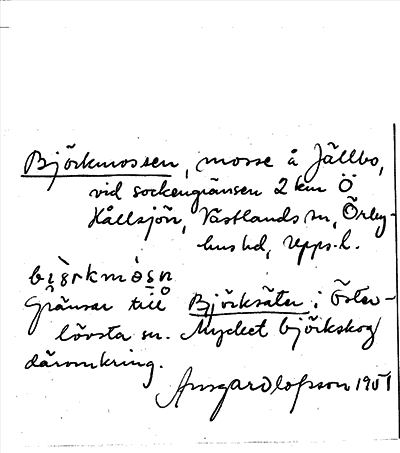 Björkmossen, mosse å Jällbo,
vid sockengränsen 2 km Ö
Kållsjön, Västlands sn, Örby-
hus hd, Upps. l.
bı̀örkmósn
Gränsar till Björksäter i Öster-
lövsta sn. Mycket björkskog
däromkring.
Ansgar Olofsson 1951